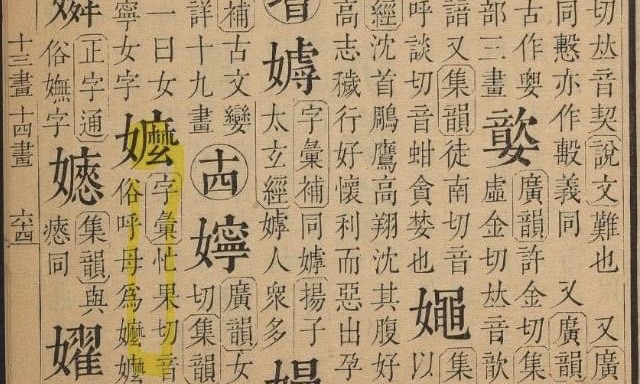 切𠀤音契說文難也 又廣
同 亦作 義同 又廣韻
古作
部三畫
廣韻許金切
虛金切𠀤音歆
又集韻徒南切音
呼談切音蚶貪婪也
集
以
經沈首鵩鷹高翔沈其腹好
高志穢行好懷利而惡出孕
字彙補同 揚子
太玄經 人衆多
補古文變
詳十九畫
十四
嬣
廣韻女
切集韻
一曰女
寧女字
嬤
字彙忙果切音
俗呼母爲嬤嬤
正字通
俗嫵字
集韻與
同
嬥
十三畫 十四畫 六十四